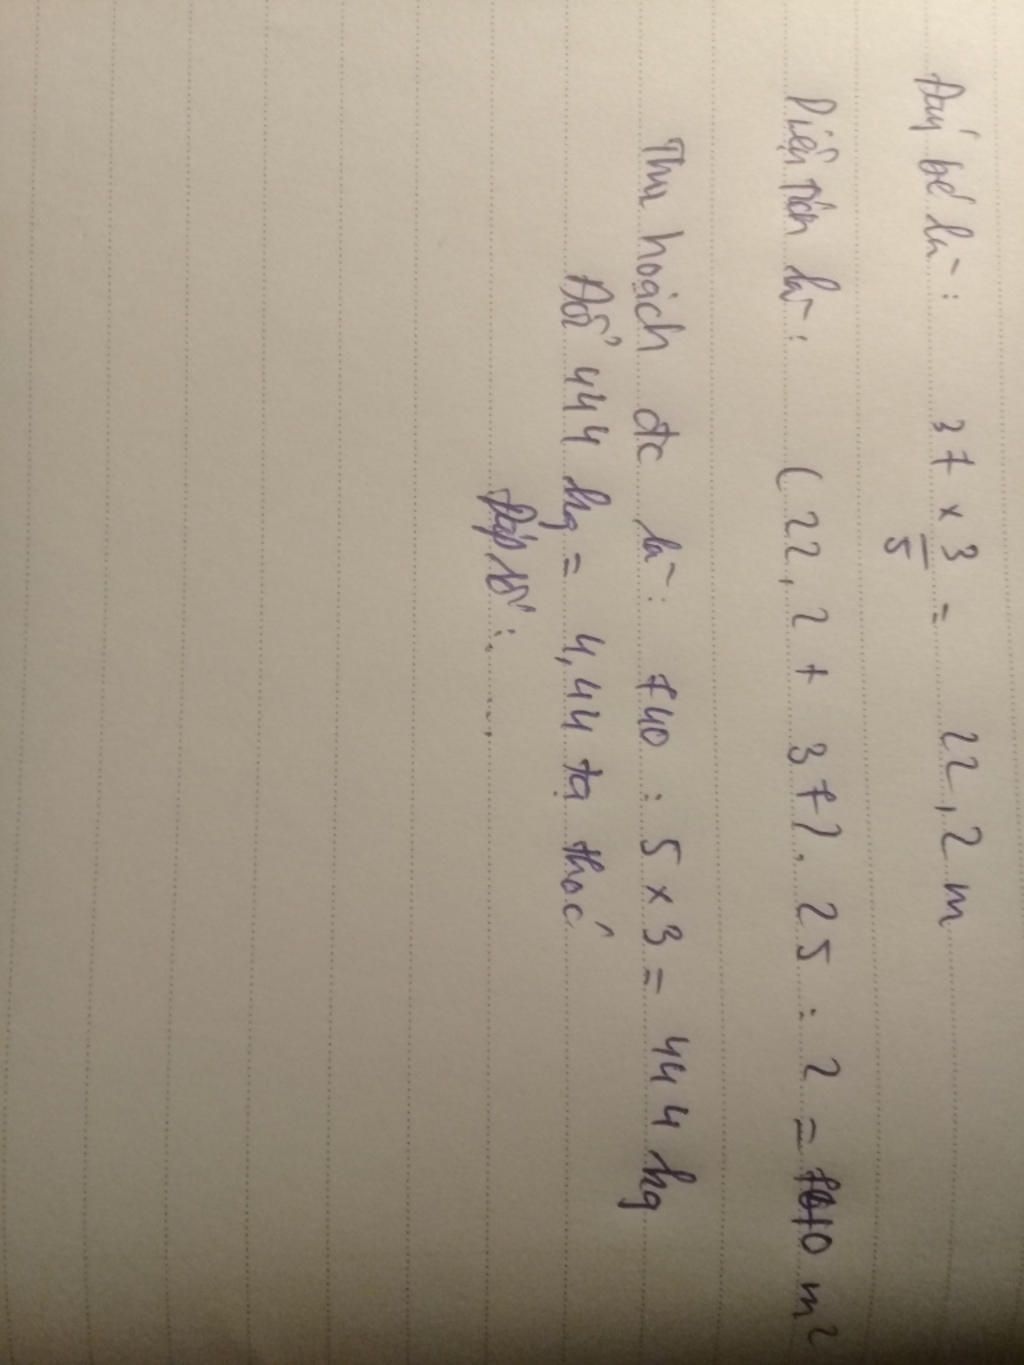 Đáy bé là: 37 x 3/5 = 22,2 m
Diện tích là: (22,2 + 37). 25 : 2 = 740 m²
Thu hoạch đc là: 740 : 5 x 3 = 444 kg
Đổi 444 kg = 4,44 tạ thóc
Đáp số: ....